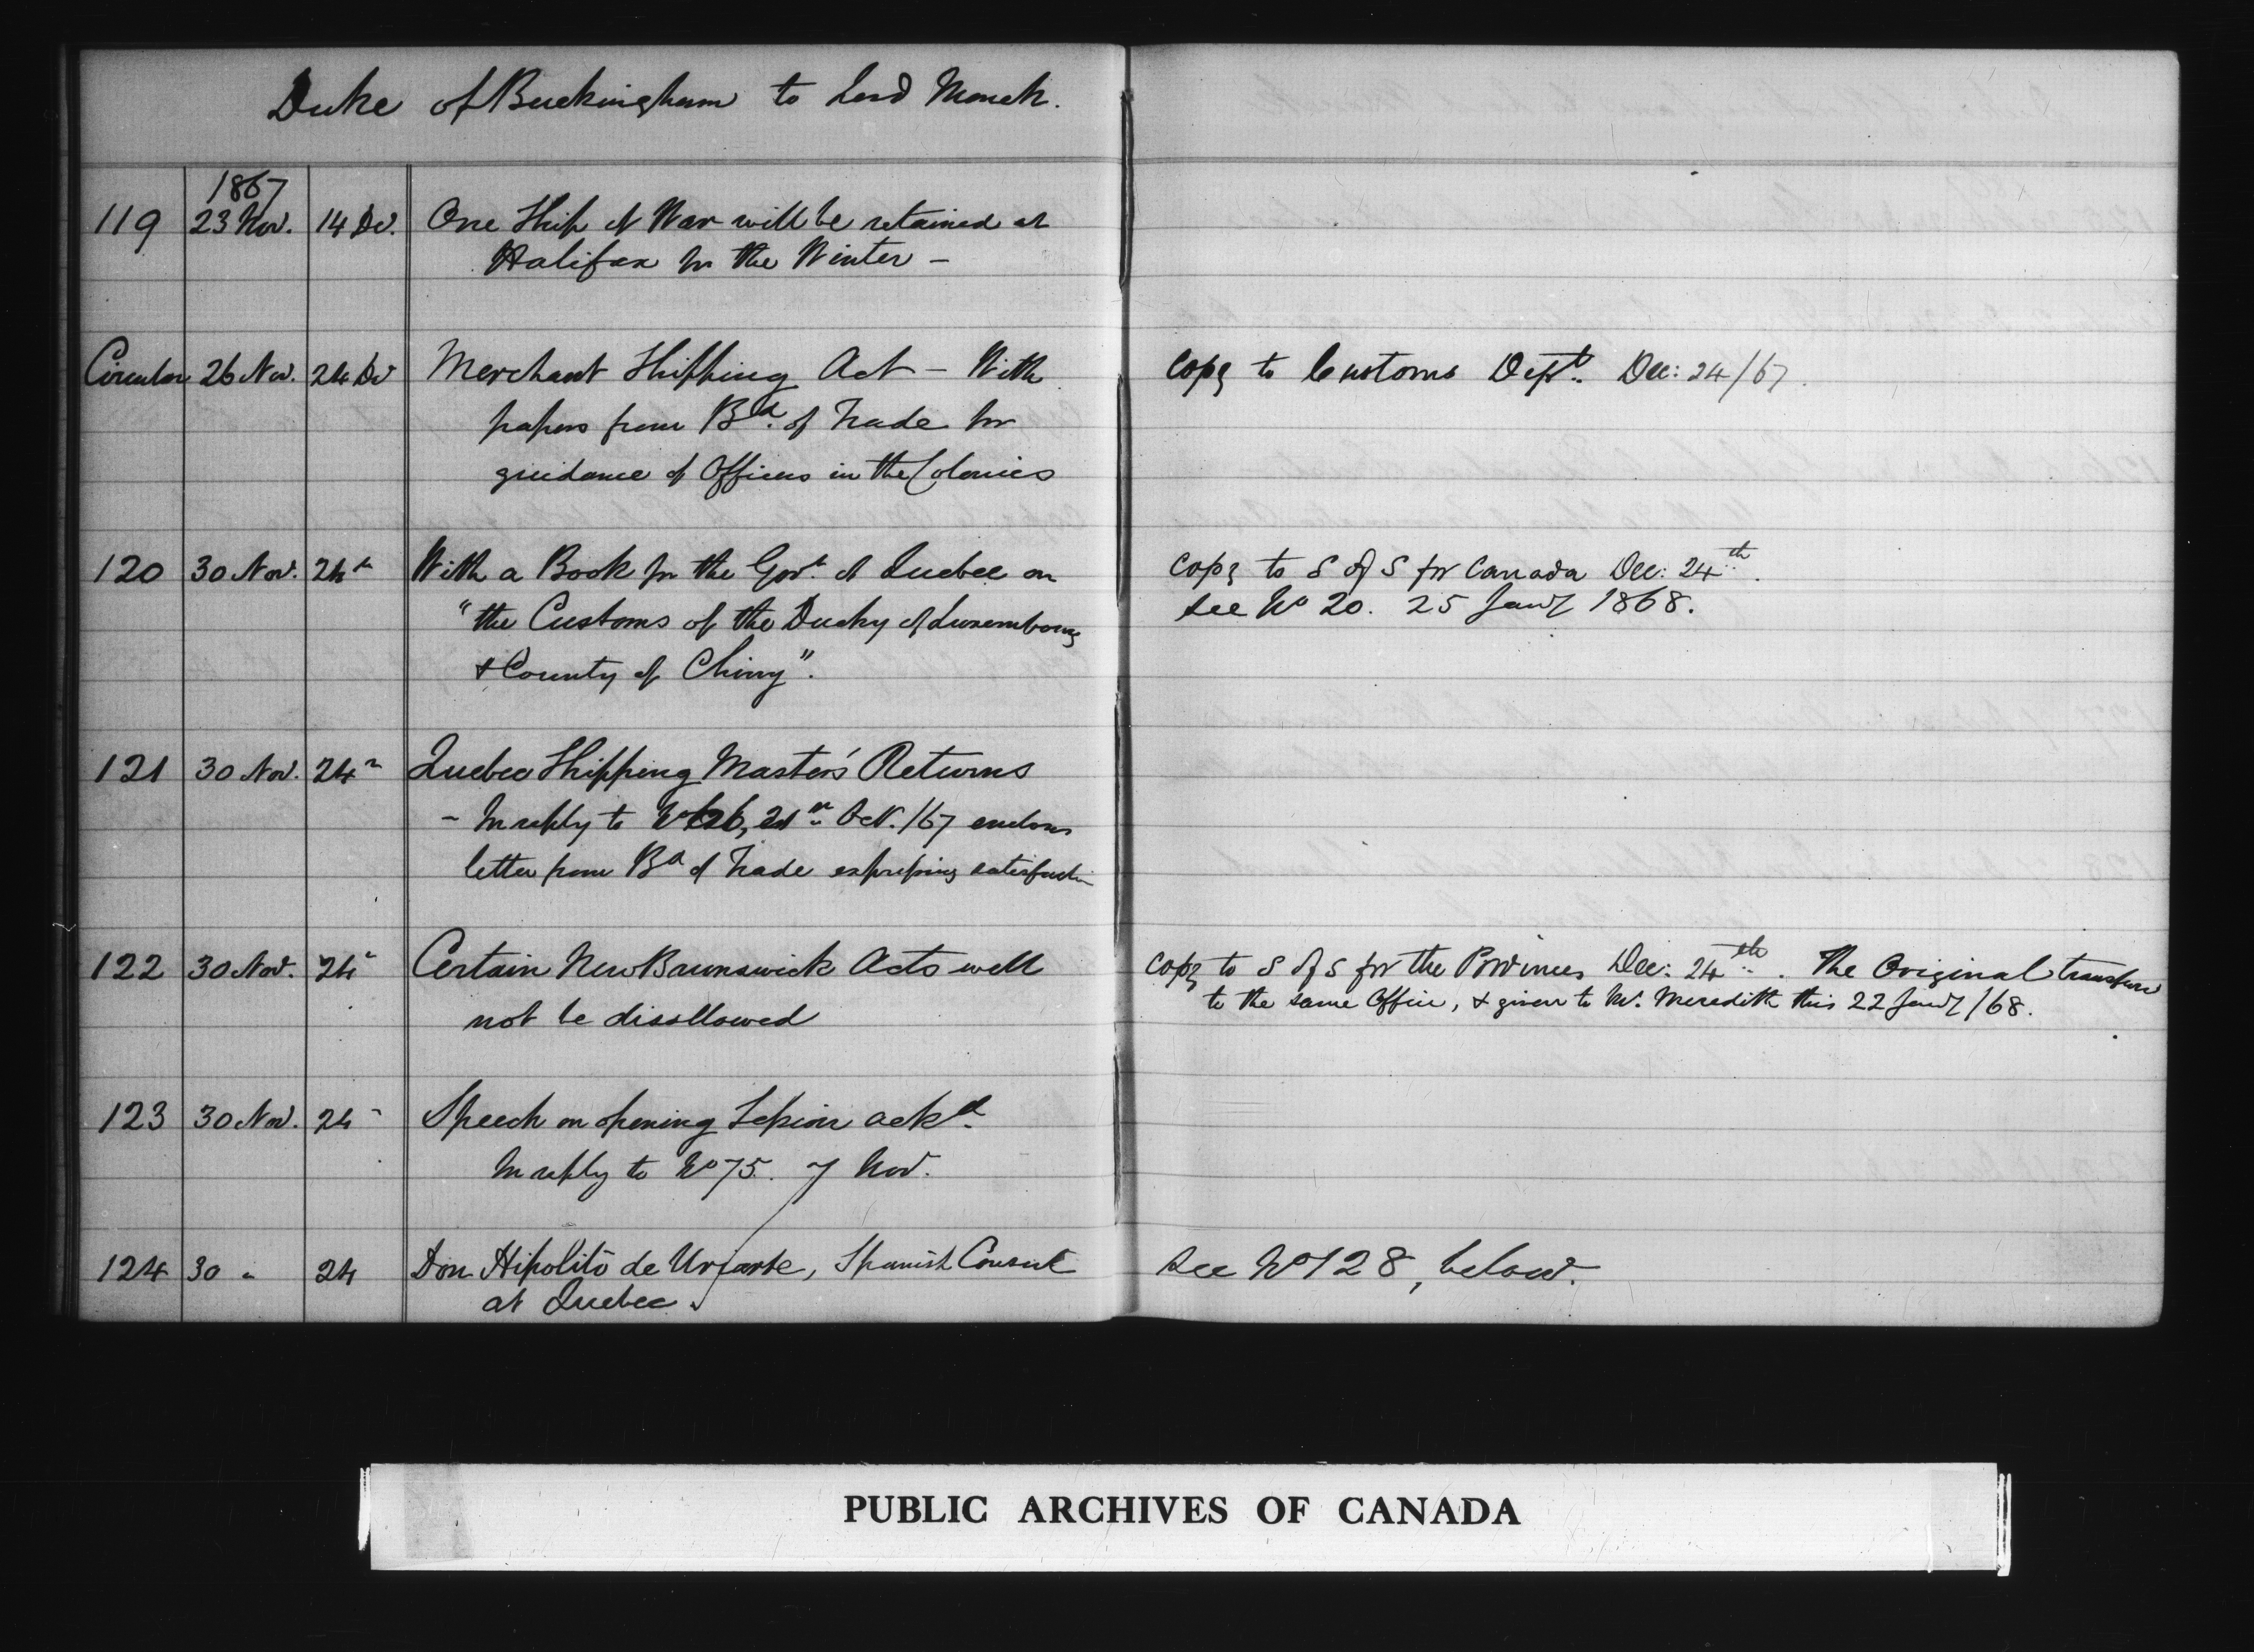 Duke of Buckingham to Lord Monck.
1867
119 23 Nov. 14 De. One Ship of War will be retained at
Halifax for the Winter –
Circular 26 Nov. 24 De Merchant Shipping Act – With copy to Customs Dept. Dec: 24/67.
papers from Bd. of Trade for
guidance of Officers in the Colonies
120 30 Nov. 24 " With a Book for the Govt. of Quebec on copy to S of S for Canada Dec: 24th.
"the Customs of the Duchy of Luxembourg see No 20. 25 Jany 1868.
& County of Chiny".
121 30 Nov. 24 " Quebec Shipping Master's Returns
– In reply to No 21 " Oct. /67 encloses
letter from Bd of Trade expressing satisfaction
122 30 Nov. 24 " Certain New Brunswick Acts will copy to S of S for the Provinces Dec: 24th. The Original transferred
not be disallowed to the same Office, & given to Mr. Meredith this 22 Jany /68.
123 30 Nov. 24 " Speech on opening Session ackd.
In reply to No 75. 7 Nov.
124 30 " 24 Don Hipolito de Uriarte, Spanish Consul see No 128, below.
at Quebec.
PUBLIC ARCHIVES OF CANADA